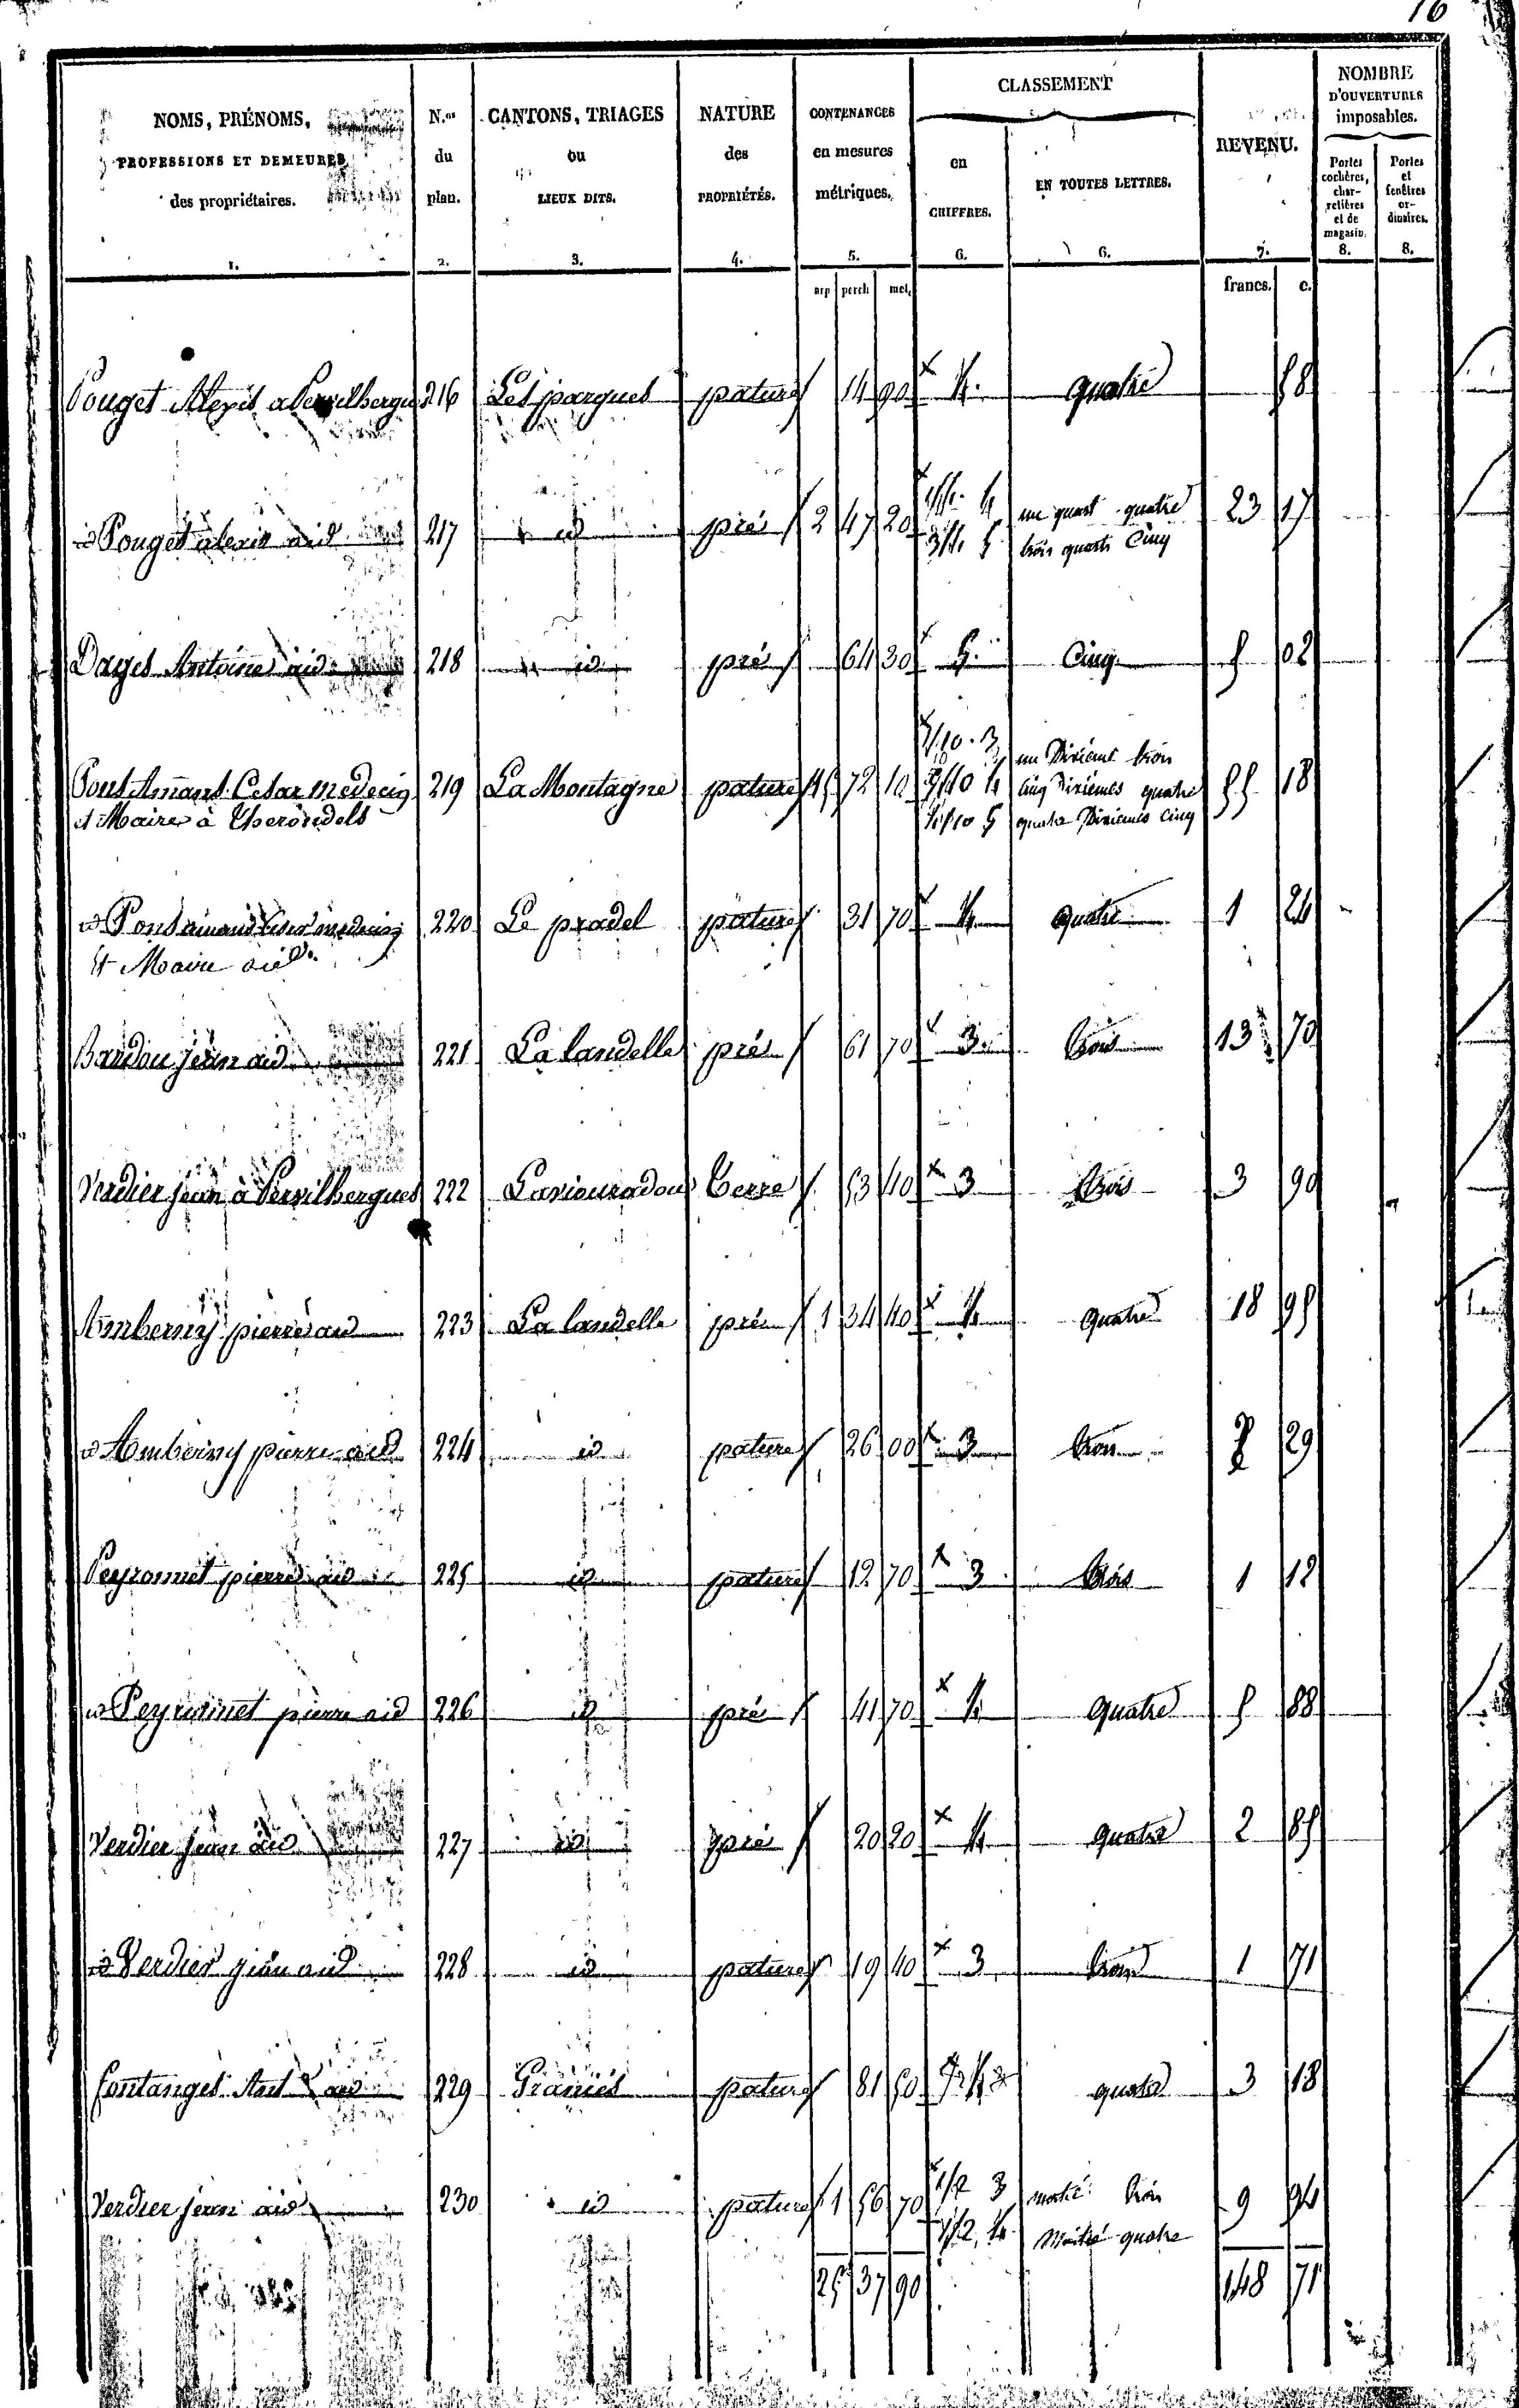 16
NOMS, PRÉNOMS,
PROFESSIONS ET DEMEURES
des propriétaires.
1.
N.os
du
plan.
2.
CANTONS, TRIAGES
ou
LIEUX DITS.
3.
NATURE
des
PROPRIÉTÉS.
4.
CONTENANCES
en mesures
métriques.
5.
CLASSEMENT
en
CHIFFRES.
6.
EN TOUTES LETTRES.
6.
REVENU.
7.
NOMBRE
D'OUVERTURES
imposables.
Portes
cochères,
char-
retières
et de
magasin.
8.
Portes
et
fenêtres
or-
dinaires.
8.
arp perch met. francs. c.
Pouget Alexis a Pervilhergues 216 Les pargues pature 14 90 4. quatre 58
id Pouget alexis aid 217 id pré 2 47 20 1/4 4 un quart quatre 23 17
3/4 5 trois quarts Cinq
Dayes Antoine aid 218 id pré 64 30 5. Cinq 5 02
Pons Amans Cesar medecin 219 La Montagne pature 15 72 10 1/10 3 un Dixieme trois 55 18
et Maire à Therondels 5/10 4 cinq Dixiemes quatre
4/10 5 quatre Dixiemes Cinq
id Pons amans Cesar medecin 220 Le pradel pature 31 70 4 quatre 1 24
et Maire aid.
Bardou jean aid 221 La landelle pré 61 70 3. trois 13 70
Verdier jean à Pervilhergues 222 Lavieuradou terre 53 40 3 trois 3 90
Amberny pierre aid 223 La landelle pré 1 34 40 4 quatre 18 95
id Amberny pierre aid 224 id pature 26 00 3 trois 2 29
Peyronnet pierre aid 225 id pature 12 70 3 trois 1 12
id Peyronnet pierre aid 226 id pré 41 70 4 quatre 5 88
Verdier jean aid 227 id pré 20 20 4 quatre 2 85
id Verdier jean aid 228 id pature 19 40 3 trois 1 71
fontanges Ant aid 229 Granies pature 81 50 4 quatre 3 18
Verdier jean aid 230 id pature 1 56 70 1/2 3 moitié trois 9 94
1/2 4 Moitié quatre
25 37 90 148 71